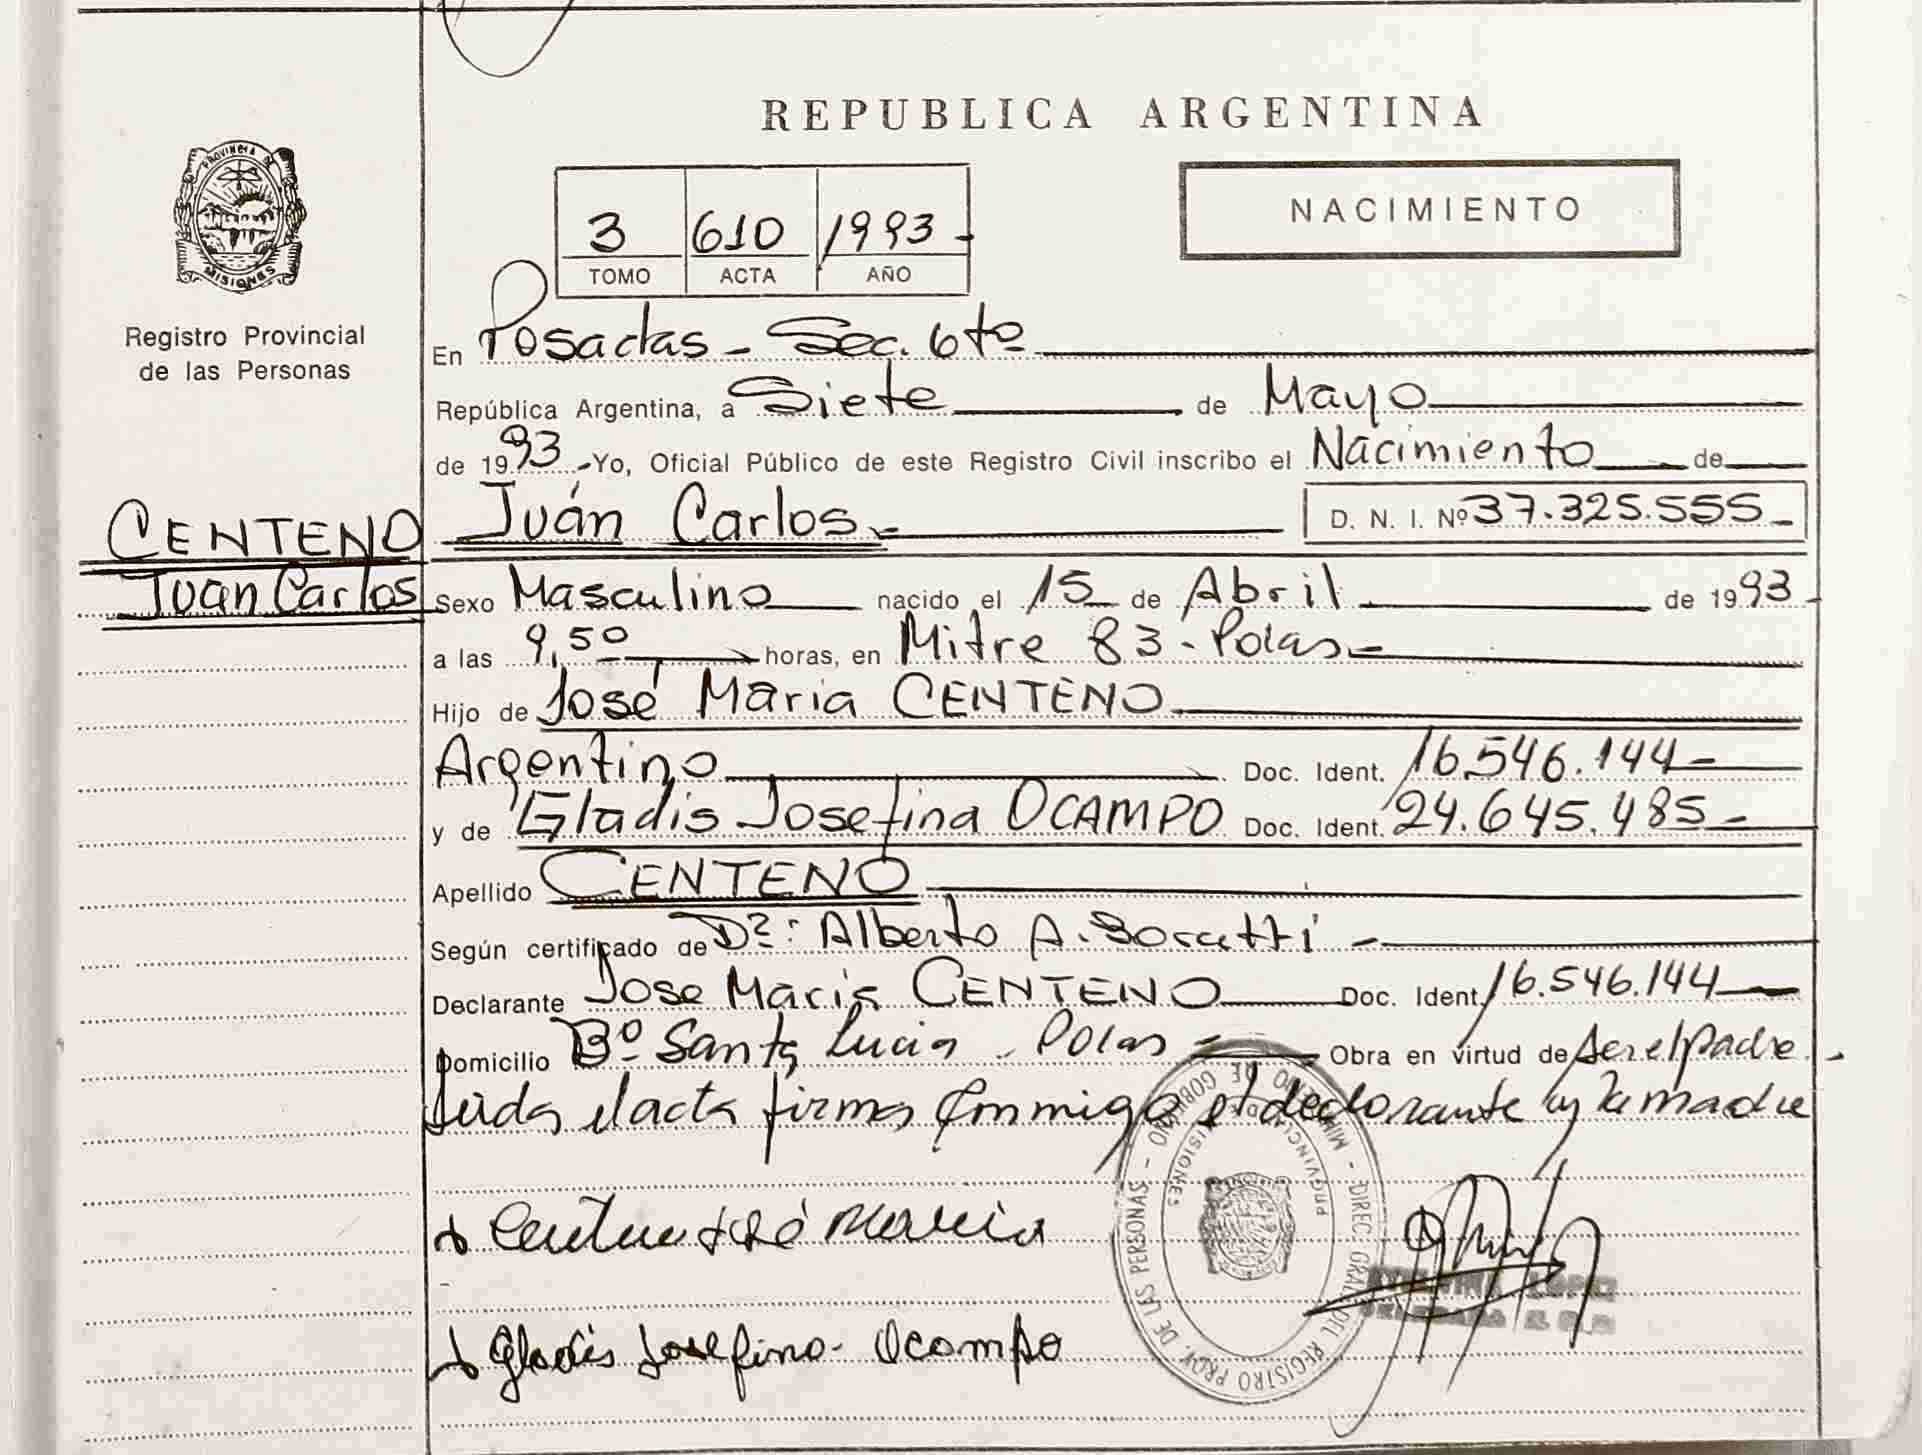 REPUBLICA ARGENTINA
PROVINCIA DE
MISIONES
Registro Provincial
de las Personas
3 610 1993
TOMO ACTA AÑO
NACIMIENTO
En Posadas - Sec. 6ta
República Argentina, a Siete de Mayo
de 1993 - Yo, Oficial Público de este Registro Civil inscribo el Nacimiento de
CENTENO
Juan Carlos
Juán Carlos.- D. N. I. Nº 37.325.555-
Sexo Masculino nacido el 15 de Abril de 1993
a las 9,50 horas, en Mitre 83 - Pdas.-
Hijo de José Maria CENTENO
Argentino Doc. Ident. 16.546.144-
y de Gladis Josefina OCAMPO Doc. Ident. 24.645.485-
Apellido CENTENO
Según certificado de Alberto A.
Declarante Jose Maria CENTENO Doc. Ident. 16.546.144
Domicilio Bº Santa Lucia - Pdas - Obra en virtud de ser el padre.
Leida el acta firma conmigo el declarante y la madre
Centeno José Maria
Gladis Josefina Ocampo
MINISTERIO DE GOBIERNO - DIREC. GRAL. DEL REGISTRO PROV. DE LAS PERSONAS -
PROVINCIA DE MISIONES
LOPEZ